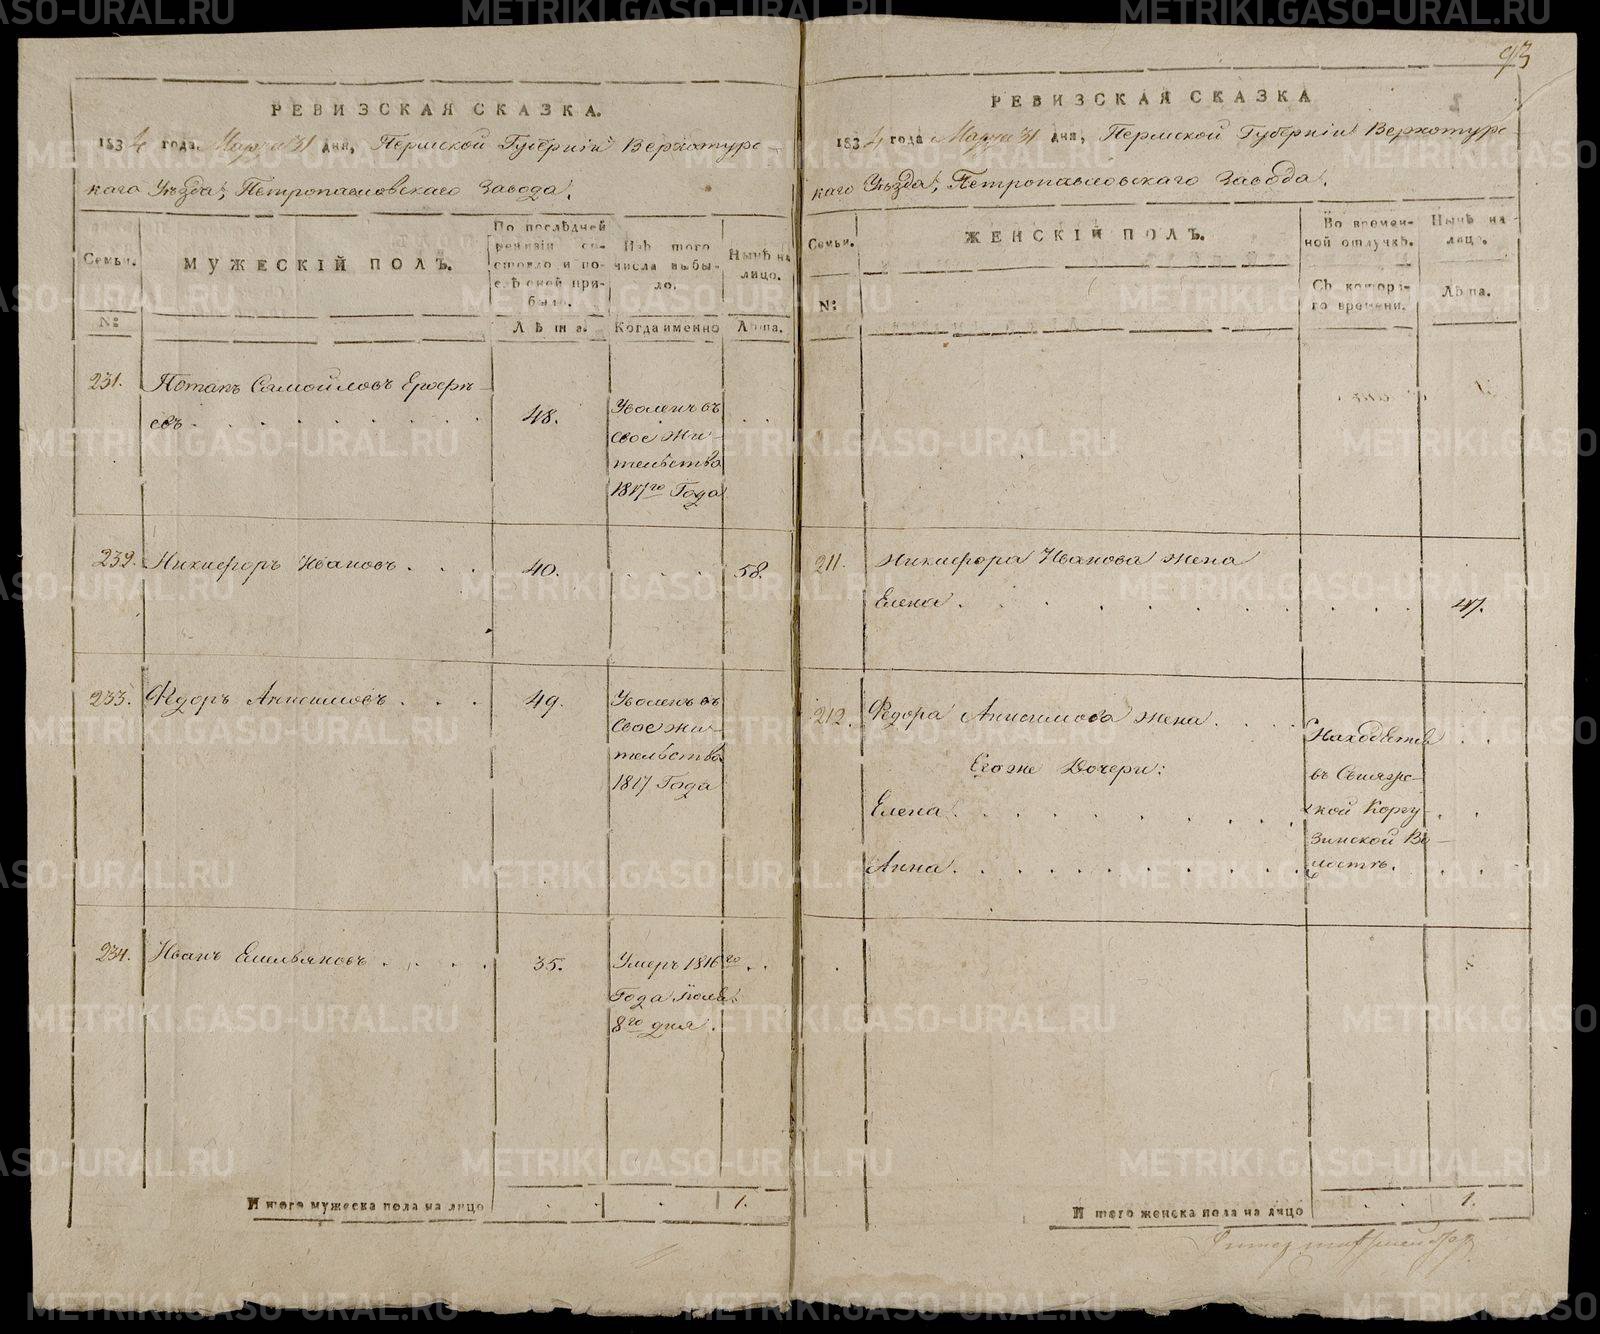 93
РЕВИЗСКАЯ СКАЗКА.
1834 года Марта 31 дня, Пермской Губерніи Верхотурс-
каго Уѣзда, Петропавловскаго Завода.
Семьи.
МУЖЕСКІЙ ПОЛЪ.
По послѣдней ревизіи состояло и послѣ оной прибыло.
Изъ того числа выбыло.
Нынѣ на лицо.
№:
Лѣта.
Когда именно
Лѣта.
231. Потапъ Самойловъ
евъ 48.
Уволенъ въ
свое жи-
тельство
1817го Года
232. Никифоръ Ивановъ 40. 58.
233. Ѳедоръ Анисимовъ 49.
Уволенъ въ
Свое жи-
тельство
1817 Года
234. Иванъ Емельяновъ 35.
Умеръ 1816го
Года
8го дня.
И того мужеска пола на лицо 1.
РЕВИЗСКАЯ СКАЗКА
1834 года Марта 31 дня, Пермской Губерніи Верхотурс-
каго Уѣзда, Петропавловскаго Завода.
Семьи.
ЖЕНСКІЙ ПОЛЪ.
Во временной отлучкѣ.
Нынѣ на лицо.
№:
Съ котораго времени.
Лѣта.
211. Никифора Иванова жена
Елена 47.
212. Ѳедора Анисимова жена
Егоже Дочери:
Елена
Анна
Находятся
въ
ской
зинской Во-
лости.
И того женска пола на лицо 1.